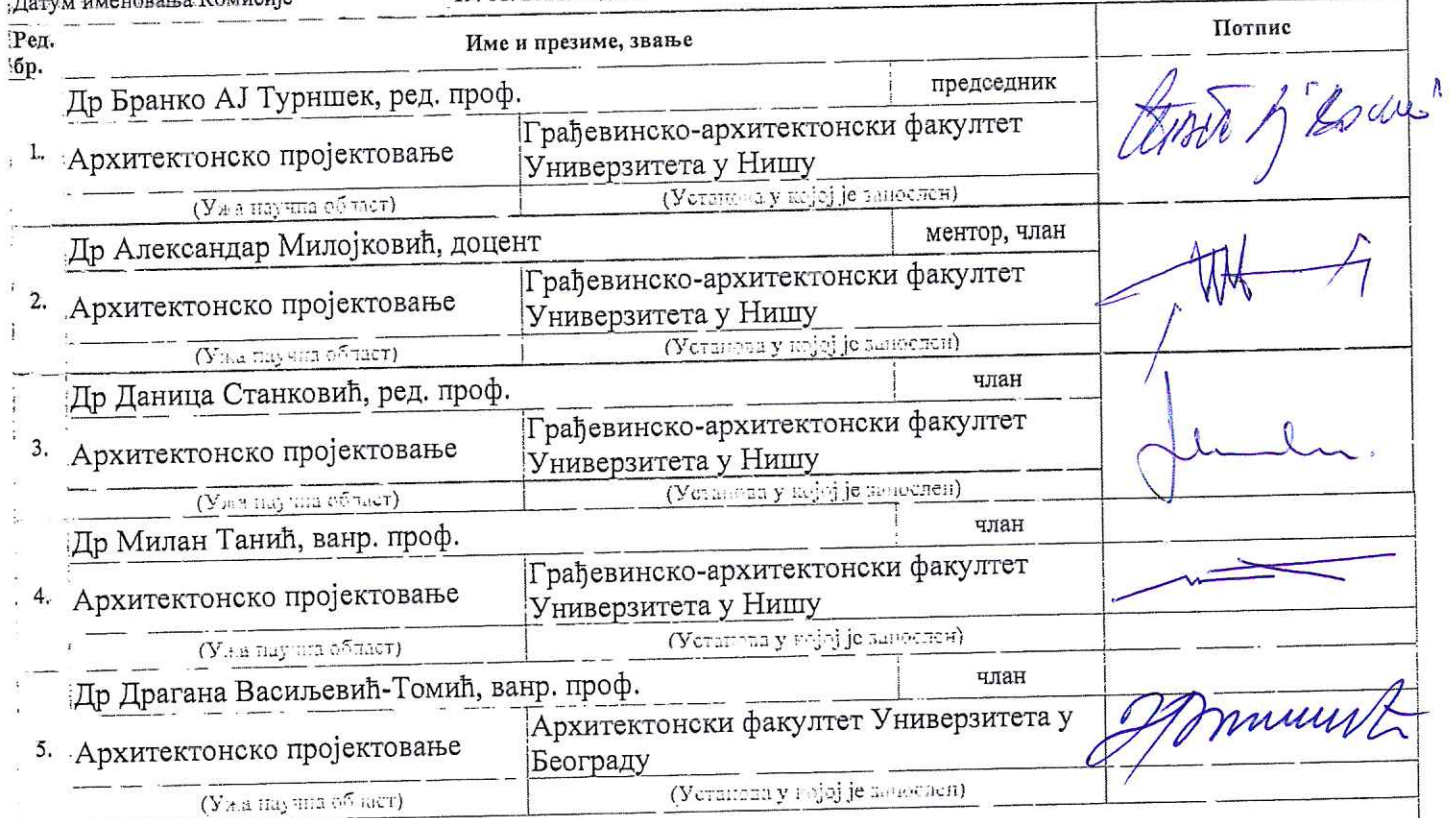 Датум именовања Комисије
Ред. бр.
Име и презиме, звање
Потпис
Др Бранко АЈ Турншек, ред. проф.
председник
1.
Архитектонско пројектовање
Грађевинско-архитектонски факултет
Универзитета у Нишу
(Ужа научна област)
(Установа у којој је запослен)
Др Александар Милојковић, доцент
ментор, члан
2.
Архитектонско пројектовање
Грађевинско-архитектонски факултет
Универзитета у Нишу
(Ужа научна област)
(Установа у којој је запослен)
Др Даница Станковић, ред. проф.
члан
3.
Архитектонско пројектовање
Грађевинско-архитектонски факултет
Универзитета у Нишу
(Ужа научна област)
(Установа у којој је запослен)
Др Милан Танић, ванр. проф.
члан
4.
Архитектонско пројектовање
Грађевинско-архитектонски факултет
Универзитета у Нишу
(Ужа научна област)
(Установа у којој је запослен)
Др Драгана Васиљевић-Томић, ванр. проф.
члан
5.
Архитектонско пројектовање
Архитектонски факултет Универзитета у
Београду
(Ужа научна област)
(Установа у којој је запослен)